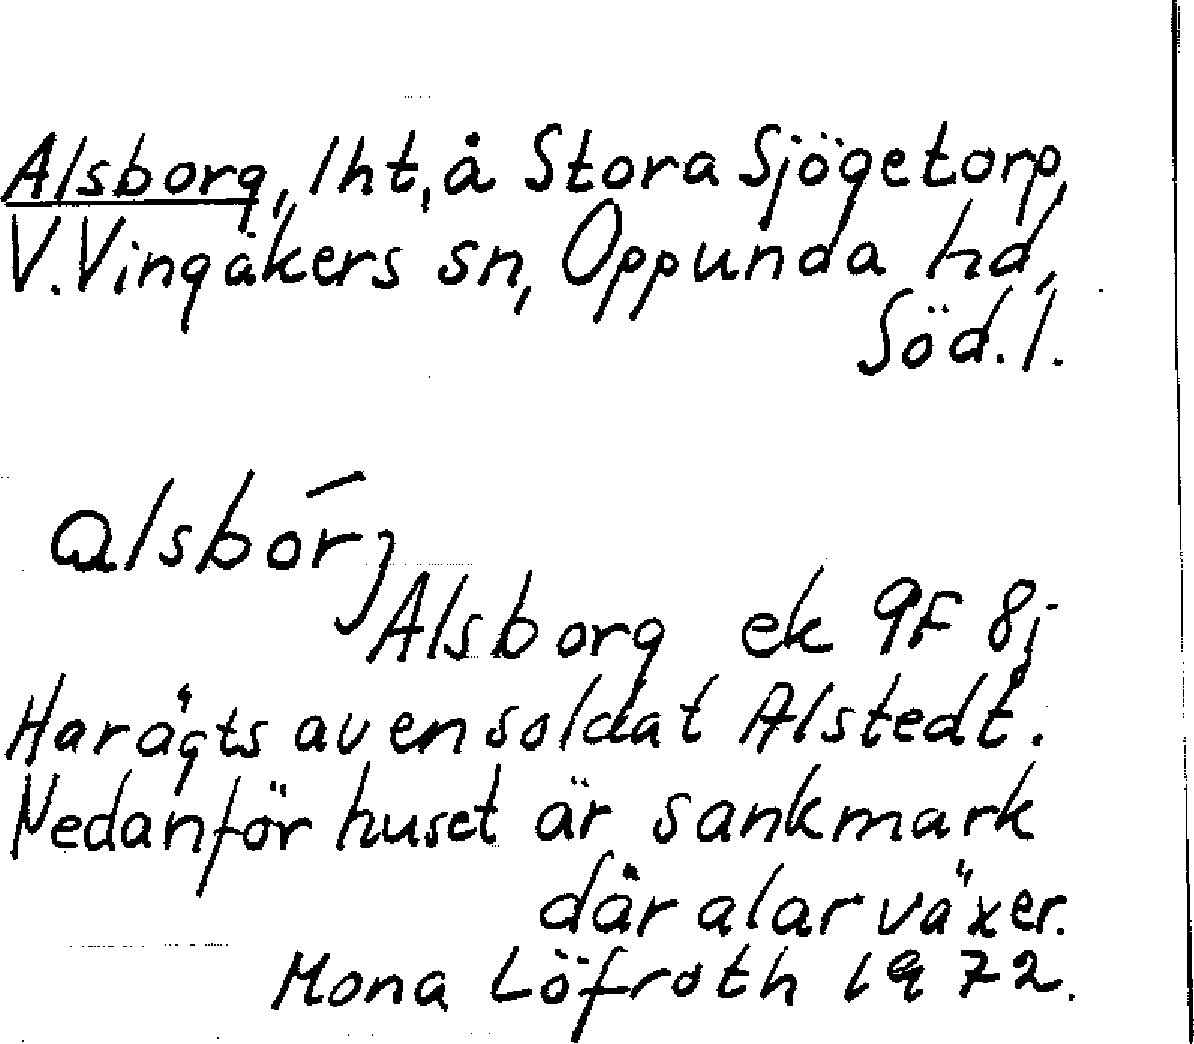 Alsborg, lht, å Stora Sjögetorp,
V. Vingåkers sn, Oppunda hd,
Söd. l.
alsbórj
Alsborg ek 9F 8j
Har ägts av en soldat Alstedt.
Nedanför huset är sankmark
där alar växer.
Mona Löfroth 1972.